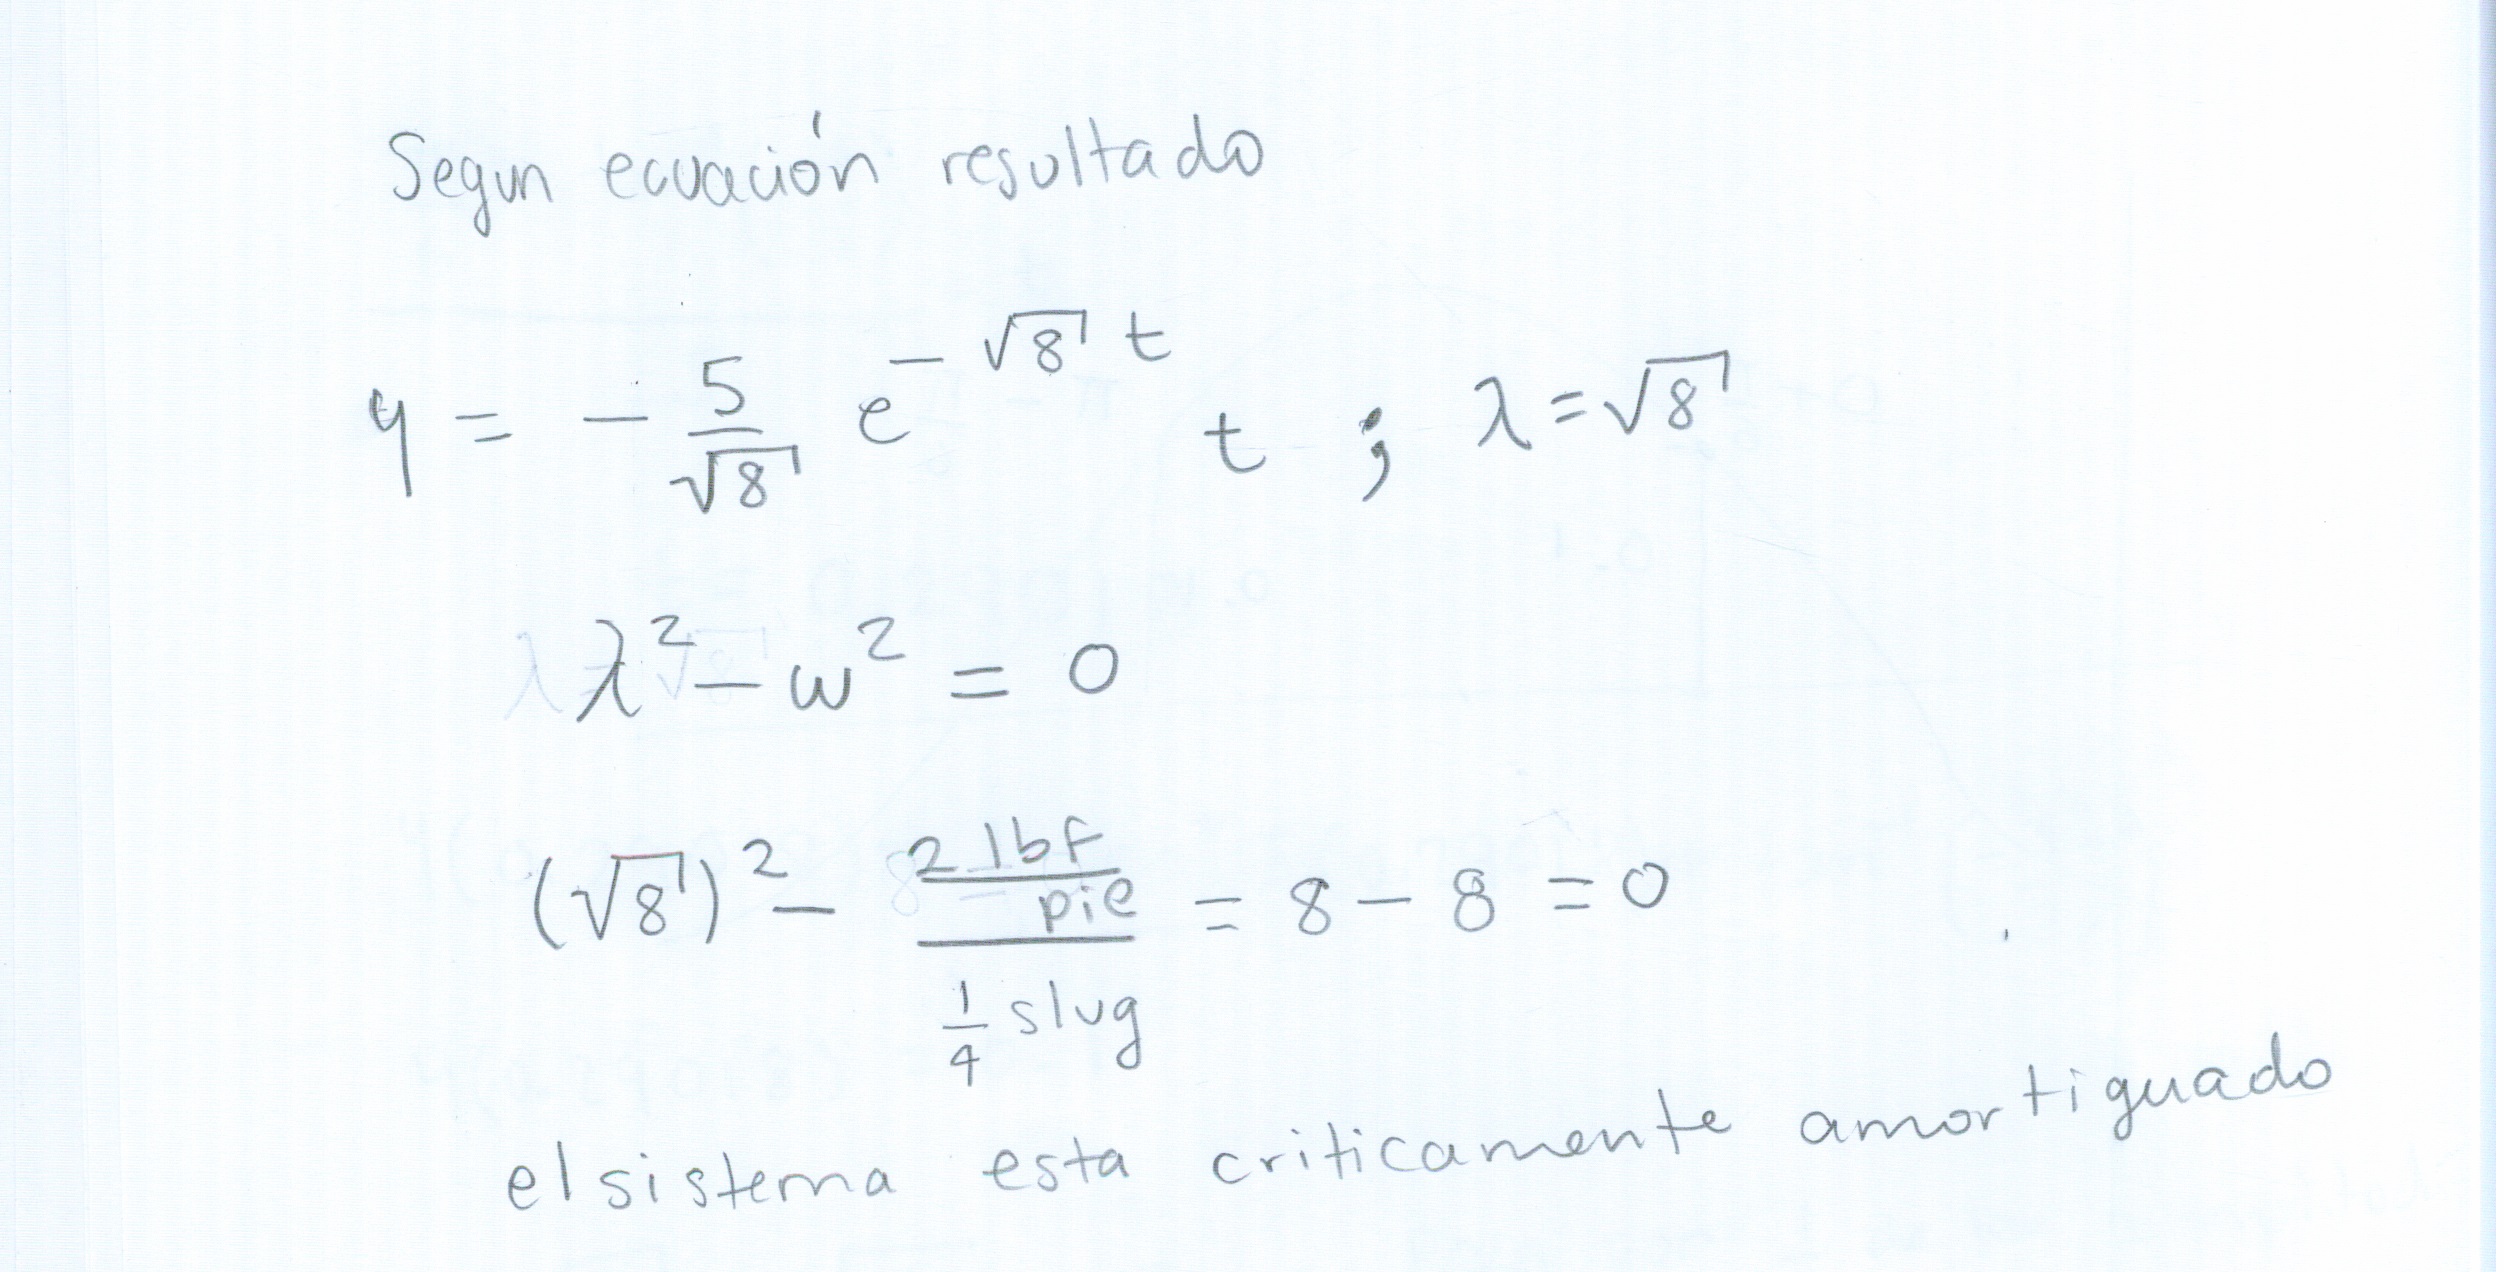 Segun ecuación resultado
y = - 5/√8 e^(-√8 t) t ; λ = √8
λ² - w² = 0
(√8)² - (2 lbf/pie)/(1/4 slug) = 8 - 8 = 0
el sistema esta criticamente amortiguado